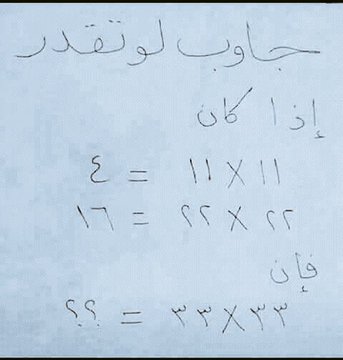 جاوب لو تقدر
إذا كان
١١ × ١١ = ٤
٢٢ × ٢٢ = ١٦
فإن
٣٣ × ٣٣ = ؟؟